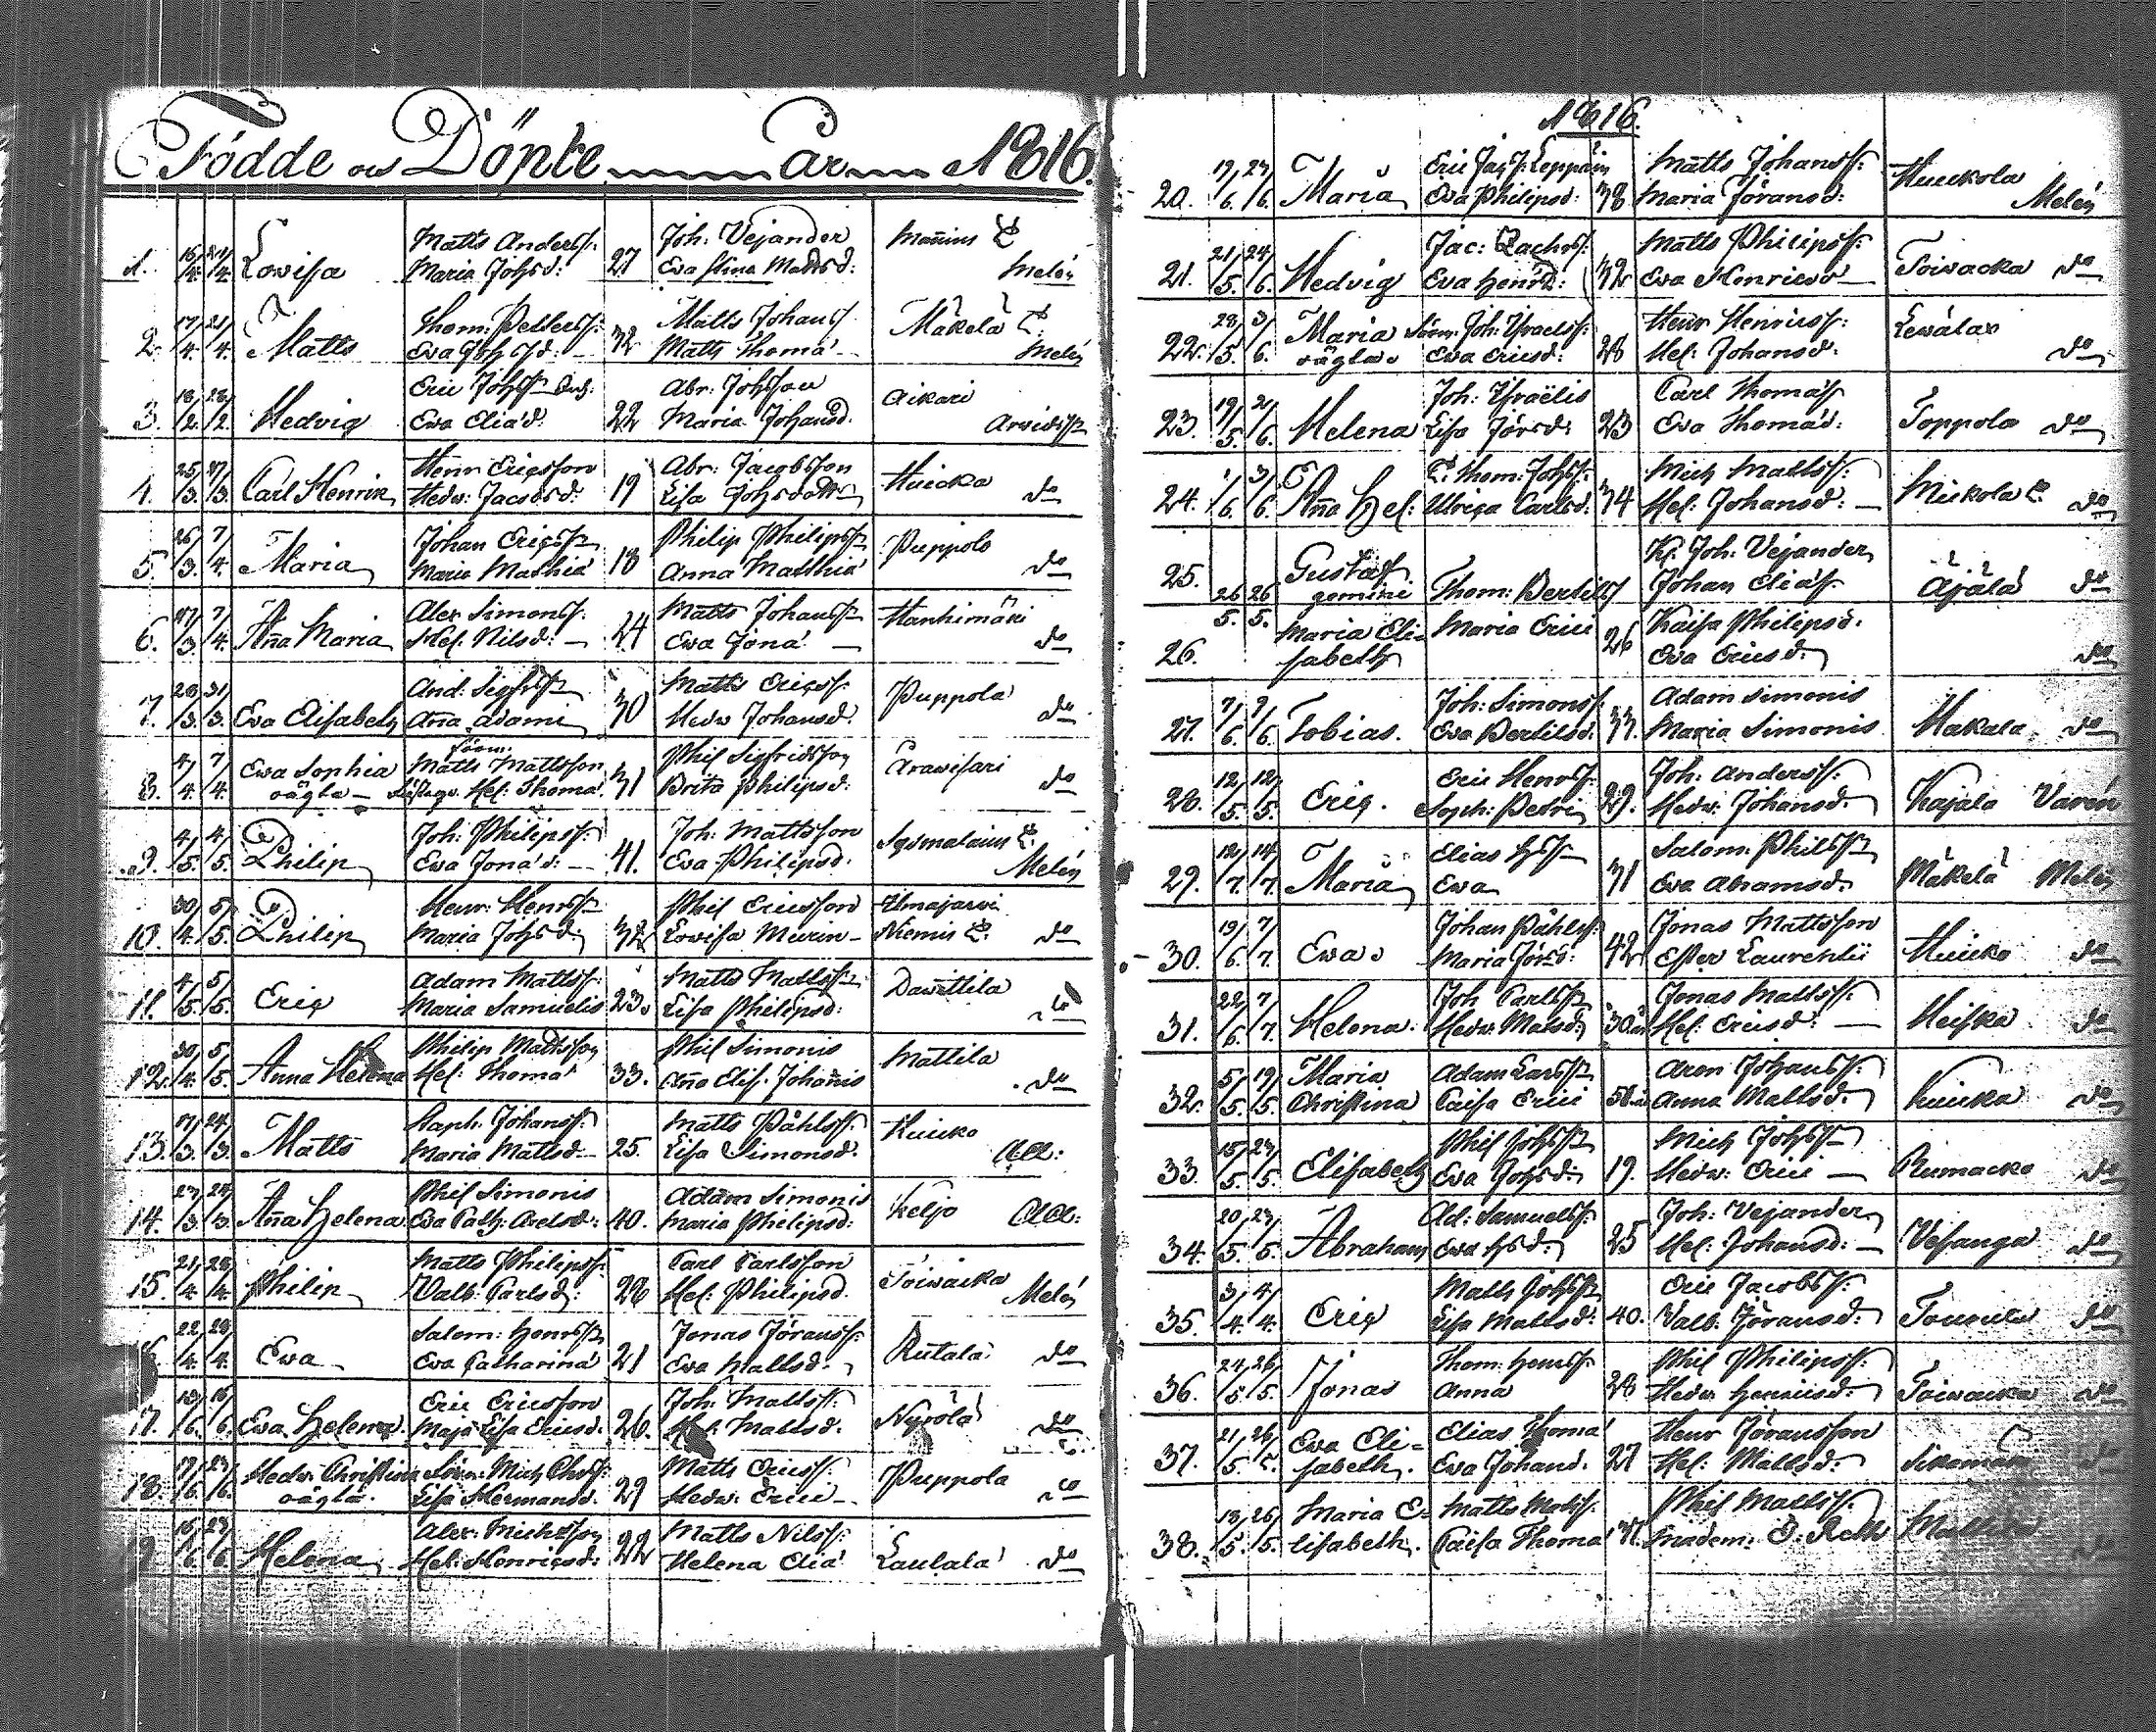 Födde och Döpte År 1816.
1. 16/4. 21/4. Lovisa Matts Anderss: Maria Johsd: 27 Joh: Vejander Eva Stina Mattsd: Melén
2. 17/4. 21/4. Matts Thom: Petterss: Eva Johsd: 32 Matts Johanss Matts Thomæ Mäkelä Melén
3. 18/2. 28/2. Hedvig Eric Johss Eva Eliæd. 22 Abr: Johsson Maria Johansd. Aikari Arvidss
4. 25/3. 27/3. Carl Henrik Henr Ericsson Hedv: Jacobsd: 19 Abr: Jacobsson Lisa Johsdotter Huicka do
5. 26/3. 7/4. Maria Johan Ericss Maria Mathiæ 18 Philip Philipss Anna Matthiæ Puppola do
6. 27/3 7/4 Aña Maria Alex Simonss: Hel: Nilsd: 24 Matts Johanss Eva Jonæ do
7. 28/3. 31/3. Eva Elisabeth And. Sigfrss Aña Adami 30 Matts Ericss: Hedv Johansd. Puppola do
8. 4/4. 7/4. Eva Sophia oägta Matts Mattsson Hel: Thomæ 31 Phil Sigfridsson Brita Philipsd: do
9. 4/5. 4/5. Philip Joh: Philipss: Eva Jonæd: 41. Joh: Mattsson Eva Philipsd. Melén
10. 30/4. 5/5. Philip Henr: Henrss Maria Johsd: 32 Phil Ericsson Lovisa Murin Ilmajärvi Niemis do
11. 4/5. 5/5. Eric Adam Mattss: Maria Samuelis 23. Matts Mattss Lisa Philipsd: do
12. 30/4. 5/5. Anna Helena Philip Mattsson Hel: Thomæ 33. Phil Simonis Aña Elis. Johañis Mattila do
13. 17/3. 24/3. Matts Staph. Johanss: Maria Mattsd: 25. Matts Påhlss: Lisa Simonsd. Huicko
14. 23/3. 24/3. Aña Helena Phil Simonis Eva Cath: Axelsd: 40. Adam Simonis Maria Philipsd: Keljo
15. 21/4. 28/4. Philip Matts Philipss: Valb: Carlsd: 28 Carl Carlsson Hel: Philipsd. Toivacka Melén
16. 22/4. 28/4. Eva Salom: Henrss Eva Catharina 21 Jonas Jöranss: Eva Mattsd: Rutala do
17. 13/6. 16/6. Eva Helena Eric Ericsson Maja Lisa Ericsd. 26. Joh: Mattss: Hel: Mattsd. Nyrölä do
18. 17/6. 23/6. Hedv: Christina oägta. Lisa Hermansd. 29 Matts Ericss: Hedv: Erici Puppola do
19. 16/6. 23/6. Helena Alex: Michelsson Hel: Henricsd: 22 Matts Nilss: Helena Eliæ Lautala do
1816.
20. 17/6. 23/6. Maria Eva Philipsd: 38 Matts Johanss: Maria Jöransd: Huickola Melén
21. 21/5. 24/6. Hedvig Jac: Zachrss: Eva Henrd: 42 Matts Philipss: Eva Henricsd Toivacka do
22. 28/5. 3/6. Maria oägta Joh: Israelss: Eva Ericsd: 28 Henr Henricss: Hel: Johansd: do
23. 19/5. 2/6. Helena Joh: Israëlis Lisa Jörsd: 23 Carl Thomæss Eva Thomæd: Toppola do
24. 1/6 3/6. Aña Hel: Thom: Johss: Ulrica Carlsd: 34 Mich Mattss: Hel: Johansd: Mickola do
25. 26/5. 26/5. Gustaf gemini Thom: Bertilss Kr. Joh: Vejander Johan Eliæss Äijälä do
26. Maria Elisabeth Maria Erici 26 Kaisa Philipsd. Eva Ericsd: do
27. 7/6. 9/6. Tobias. Joh: Simonss. Eva Bertilsd: 33. Adam Simonis Maria Simonis Makala do
28. 12/5. 12/5. Eric. Eric Henrss: Soph: Petri 29. Joh: Anderss: Hedv: Johansd: Kajala Varén
29. 12/7. 14/7. Maria Elias Hss Eva 31 Salom: Philss Eva Abramsd: Mäkelä Melén
30. 19/6. 7/7. Eva Johan Påhlss: Maria Jörsd: 42 Jonas Mattsson Ester Laurentii Huicko do
31. 22/6. 7/7. Helena: Joh Carlss Hedv: Matsd: 30 Jonas Mattss: Hel: Ericsd: Heiska do
32. 5/5. 19/5. Maria Christina Adam Larss Caisa Erici Aron Johanss: Anna Mattsd: Kuicka do
33. 15/5. 23/5. Elisabeth Phil Johss Eva Johsd: 19. Mich Johss Hedv: Erici do
34. 20/5. 23/5. Abraham Ad: Samuelss: Eva Hsd: 25 Joh: Vejander Hel: Johansd: Vesanga do
35. 3/4. 4/4. Eric Matts Johss Lisa Mattsd: 40. Eric Jacobss: Valb: Jöransd: do
36. 24/5. 26/5. Jonas Thom: Henrss Anna 28 Phil Philipss: Hedv Henricsd: Toivacka do
37. 21/5. 26/5. Eva Elisabeth. Elias Thomæ Eva Johand. 27 Henr Jöransson Hel: Mattsd: do
38. 13/5. 26/5. Maria Elisabeth. Matts Matss: Caisa Thomæ 37. Phil Mattss: Madem: Mattila do